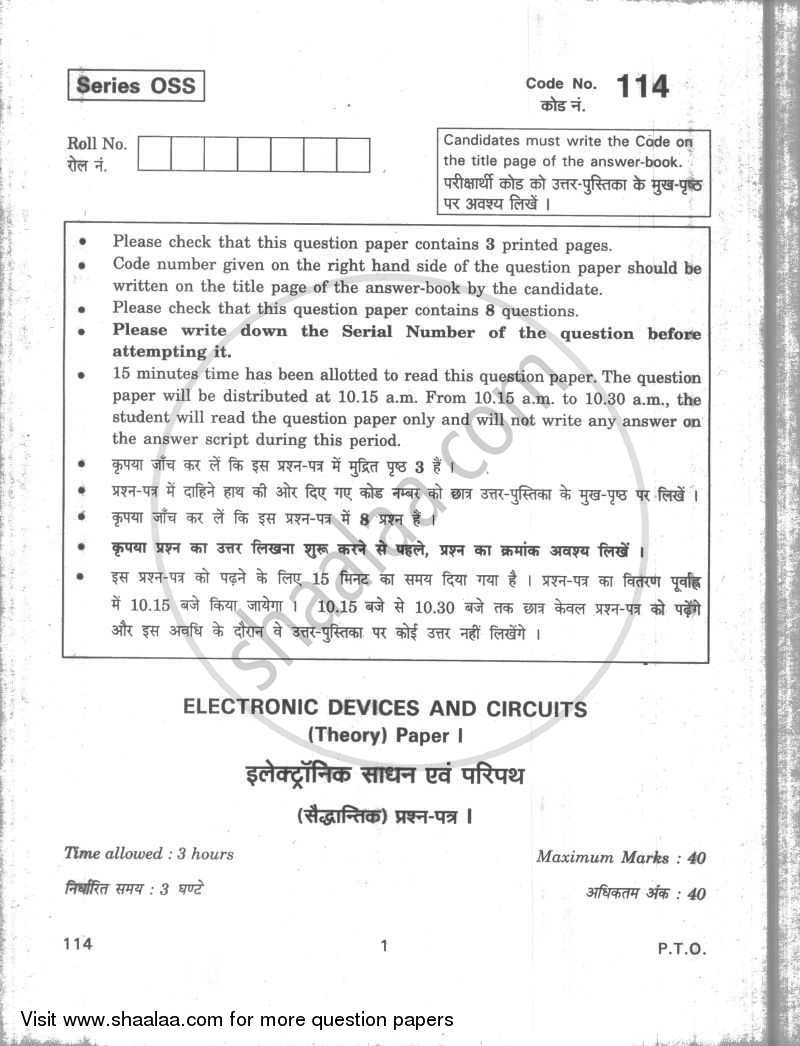 Series OSS
Code No. 114
कोड नं.
Roll No.
रोल नं.
Candidates must write the Code on
the title page of the answer-book.
परीक्षार्थी कोड को उत्तर-पुस्तिका के मुख-पृष्ठ
पर अवश्य लिखें ।
• Please check that this question paper contains 3 printed pages.
• Code number given on the right hand side of the question paper should be
written on the title page of the answer-book by the candidate.
• Please check that this question paper contains 8 questions.
• Please write down the Serial Number of the question before
attempting it.
• 15 minutes time has been allotted to read this question paper. The question
paper will be distributed at 10.15 a.m. From 10.15 a.m. to 10.30 a.m., the
student will read the question paper only and will not write any answer on
the answer script during this period.
• कृपया जाँच कर लें कि इस प्रश्न-पत्र में मुद्रित पृष्ठ 3 हैं ।
• प्रश्न-पत्र में दाहिने हाथ की ओर दिए गए कोड नम्बर को छात्र उत्तर-पुस्तिका के मुख-पृष्ठ पर लिखें ।
• कृपया जाँच कर लें कि इस प्रश्न-पत्र में 8 प्रश्न हैं ।
• कृपया प्रश्न का उत्तर लिखना शुरू करने से पहले, प्रश्न का क्रमांक अवश्य लिखें ।
• इस प्रश्न-पत्र को पढ़ने के लिए 15 मिनट का समय दिया गया है । प्रश्न-पत्र का वितरण पूर्वाह्न
में 10.15 बजे किया जायेगा । 10.15 बजे से 10.30 बजे तक छात्र केवल प्रश्न-पत्र को पढ़ेंगे
और इस अवधि के दौरान वे उत्तर-पुस्तिका पर कोई उत्तर नहीं लिखेंगे ।
shaalaa.com
ELECTRONIC DEVICES AND CIRCUITS
(Theory) Paper I
इलेक्ट्रॉनिक साधन एवं परिपथ
(सैद्धान्तिक) प्रश्न-पत्र I
Time allowed : 3 hours
Maximum Marks : 40
निर्धारित समय : 3 घण्टे
अधिकतम अंक : 40
114
1
P.T.O.
Visit www.shaalaa.com for more question papers